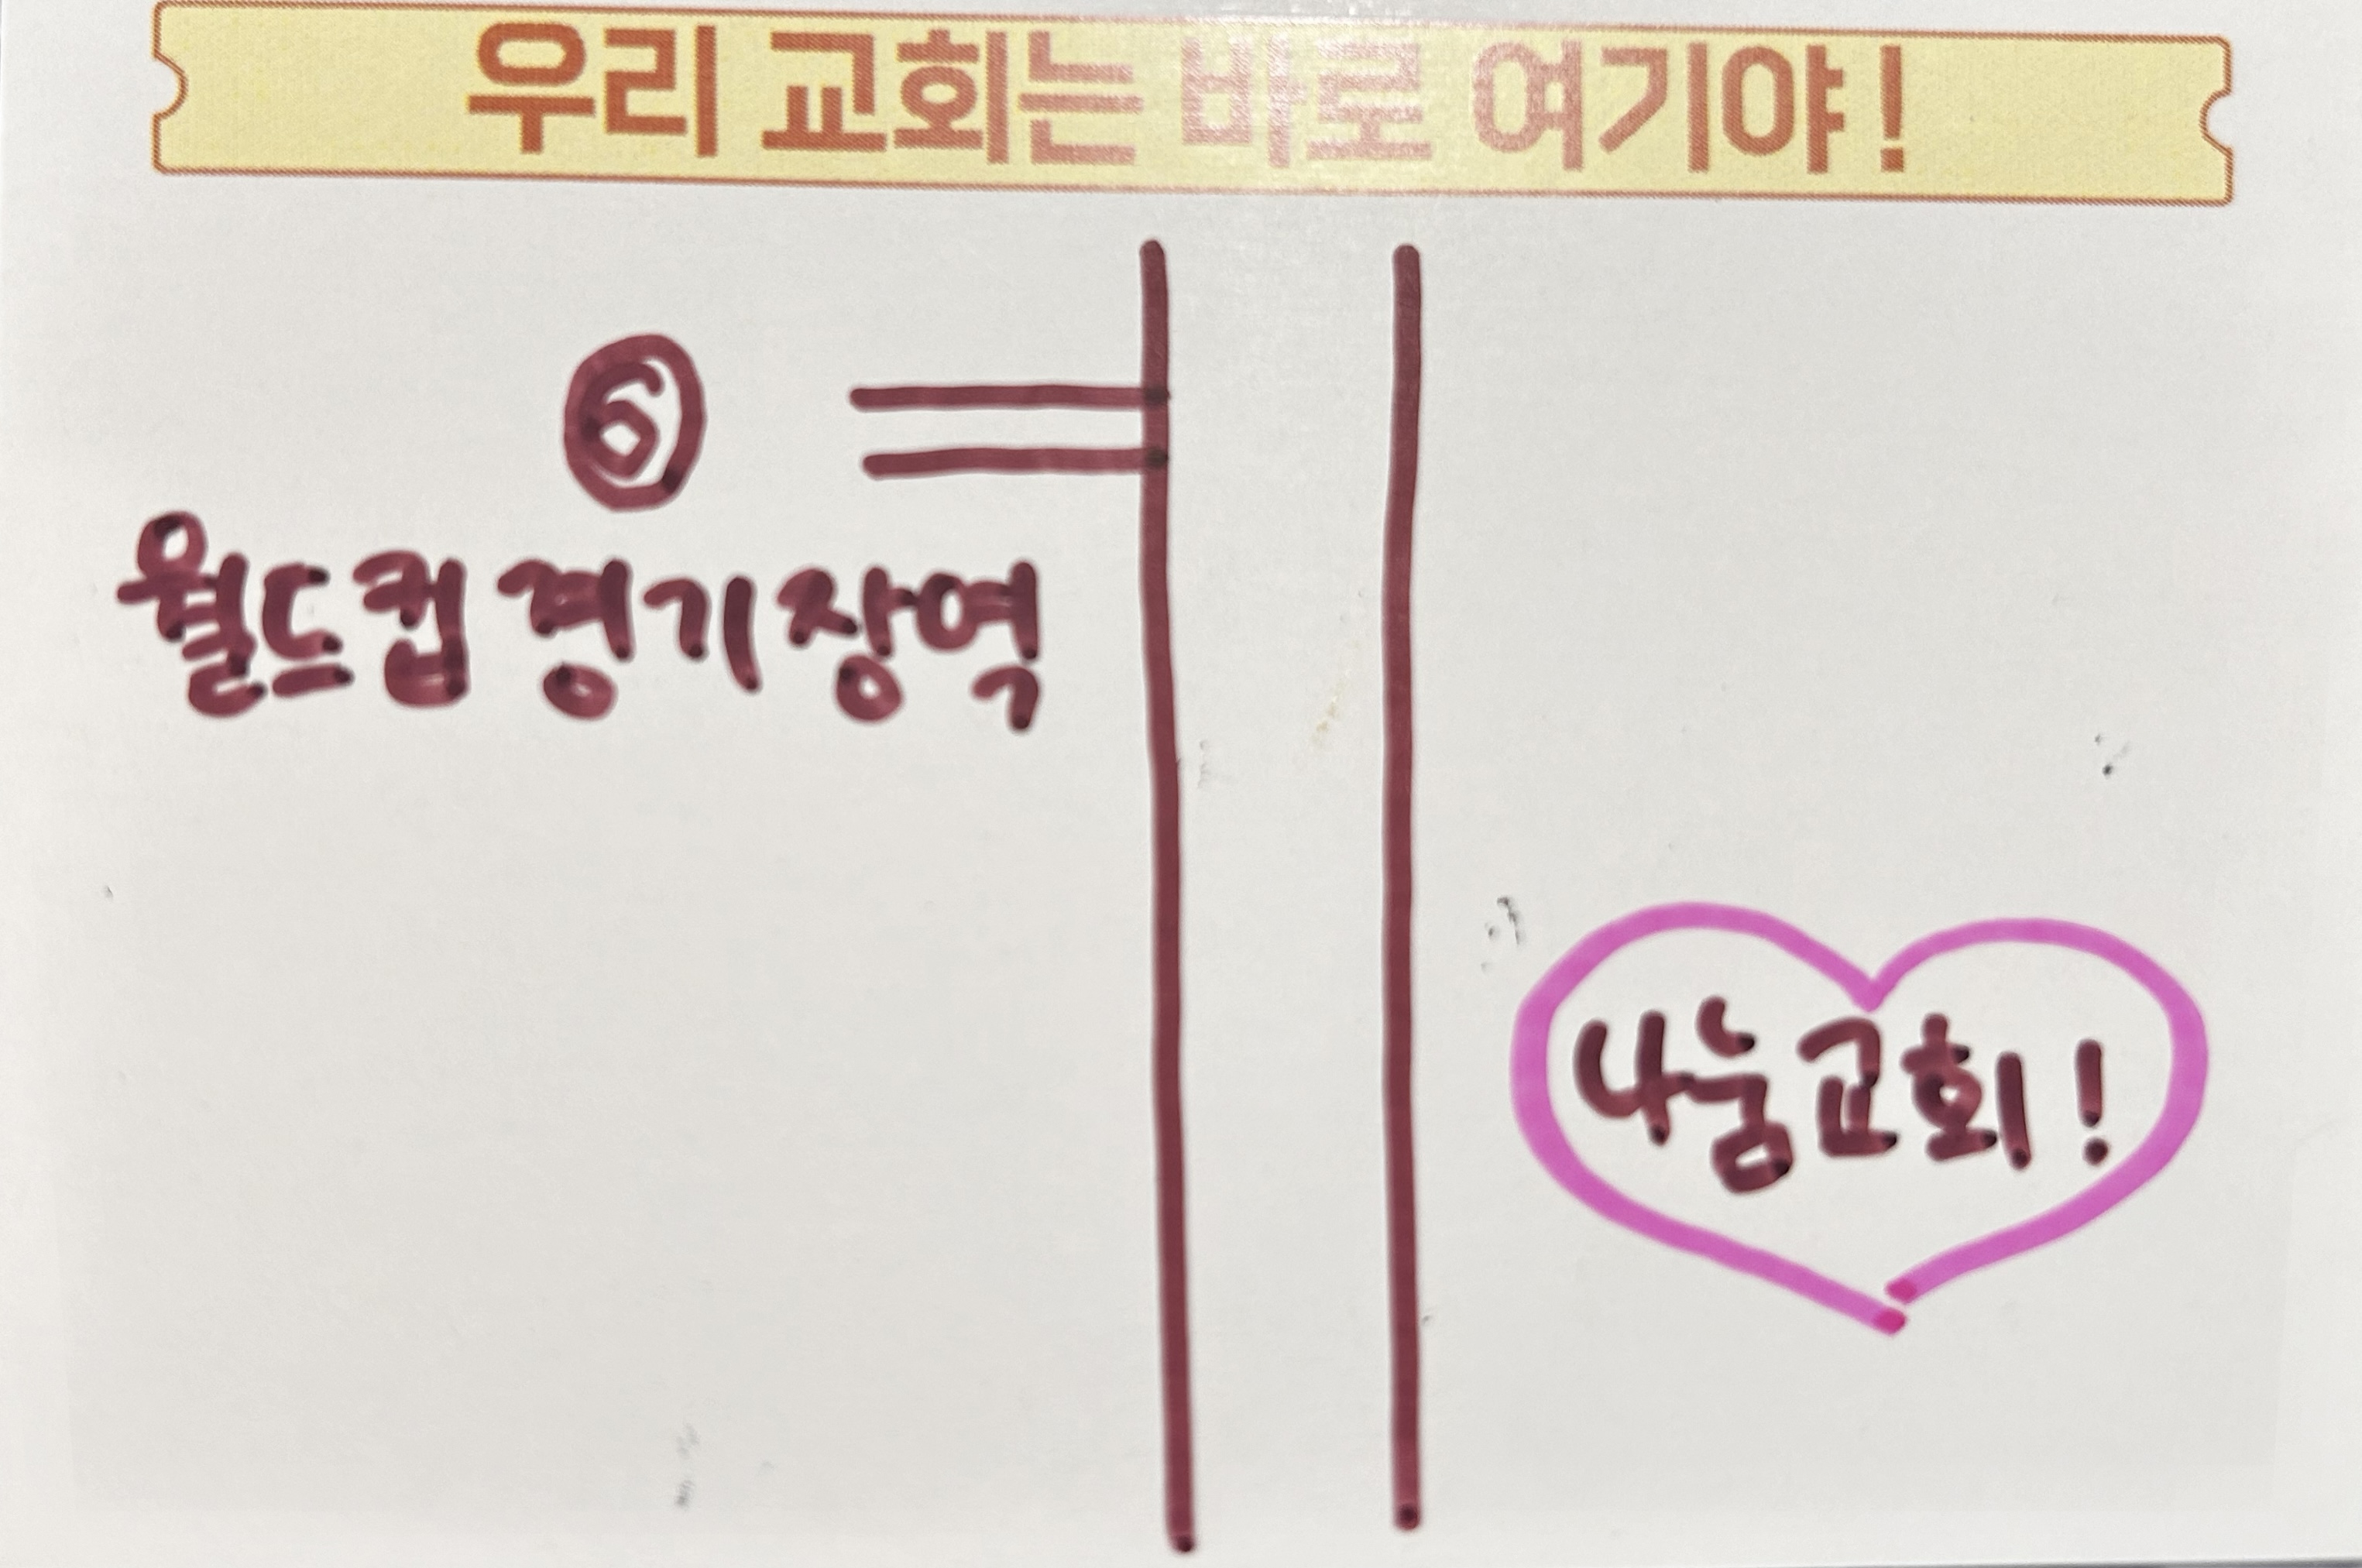 우리 교회는 바로 여기야!
⑥
월드컵경기장역
나눔교회!